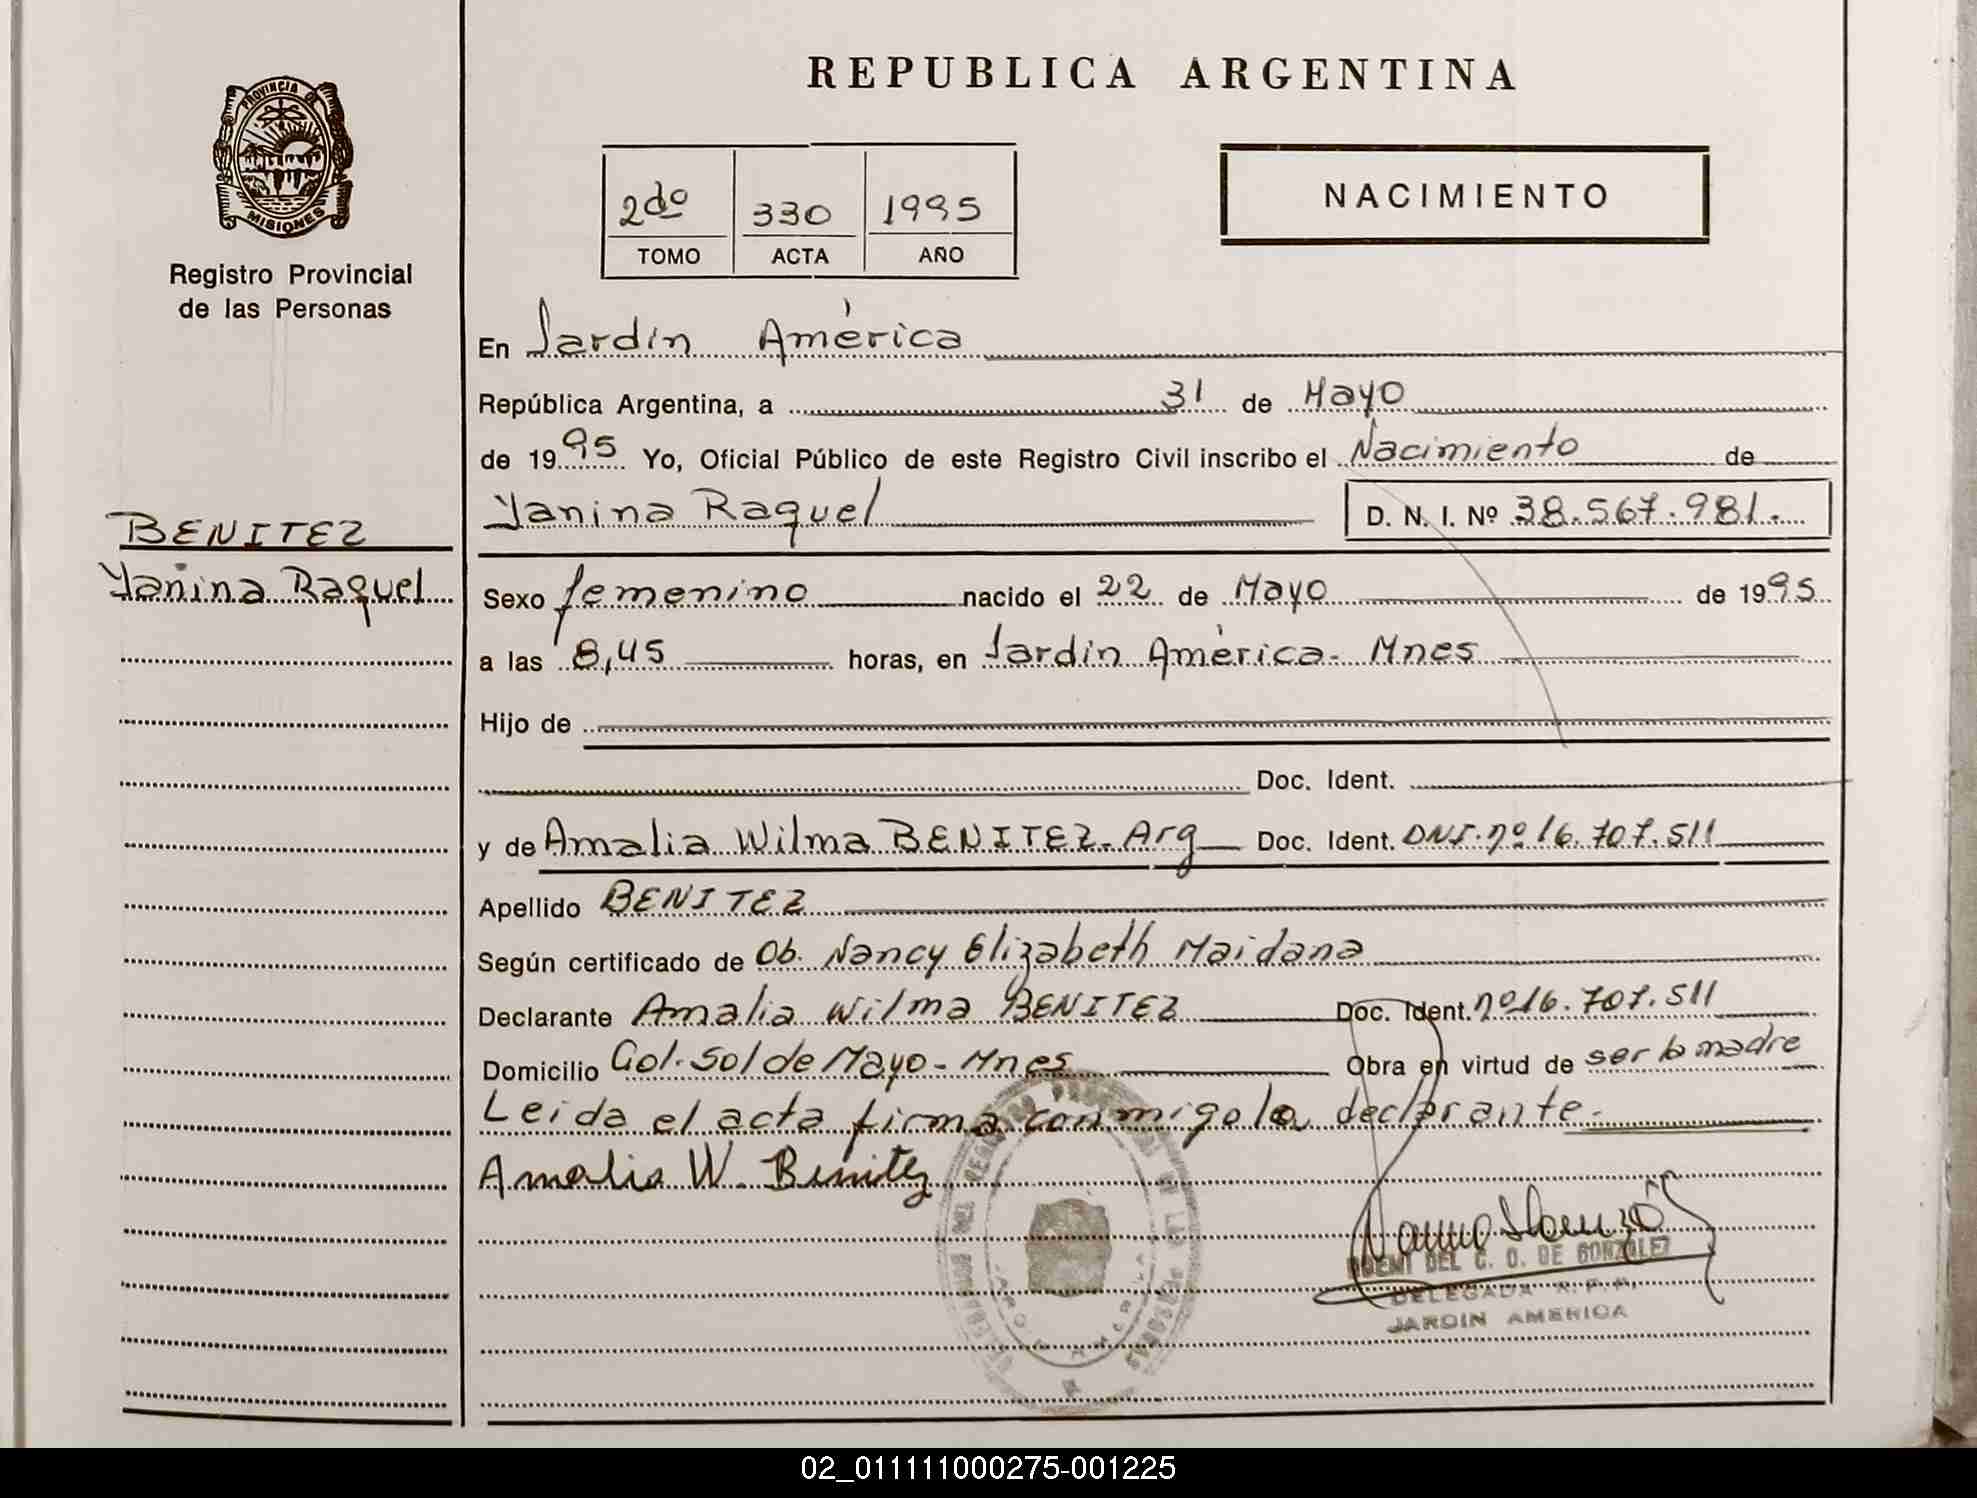 REPUBLICA ARGENTINA
PROVINCIA DE
MISIONES
Registro Provincial
de las Personas
2do 330 1995
TOMO ACTA AÑO
NACIMIENTO
En Jardín América
República Argentina, a 31 de Mayo
de 1995 Yo, Oficial Público de este Registro Civil inscribo el Nacimiento de
Yanina Raquel D. N. I. Nº 38.567.981.
BENITEZ
Yanina Raquel
Sexo femenino nacido el 22 de Mayo de 1995
a las 8,45 horas, en Jardín América- Mnes
Hijo de
Doc. Ident.
y de Amalia Wilma BENITEZ. Arg Doc. Ident. DNI. nº 16.707.511
Apellido BENITEZ
Según certificado de Ob. Nancy Elizabeth Maidana
Declarante Amalia Wilma BENITEZ Doc. Ident. nº 16.707.511
Domicilio Col. Sol de Mayo - Mnes Obra en virtud de ser la madre
Leida el acta firma conmigo la declarante.
Amalia W. Benitez
NOEMI DEL C. O. DE GONZALEZ
DELEGADA R.P.P.
JARDIN AMERICA
02_011111000275-001225